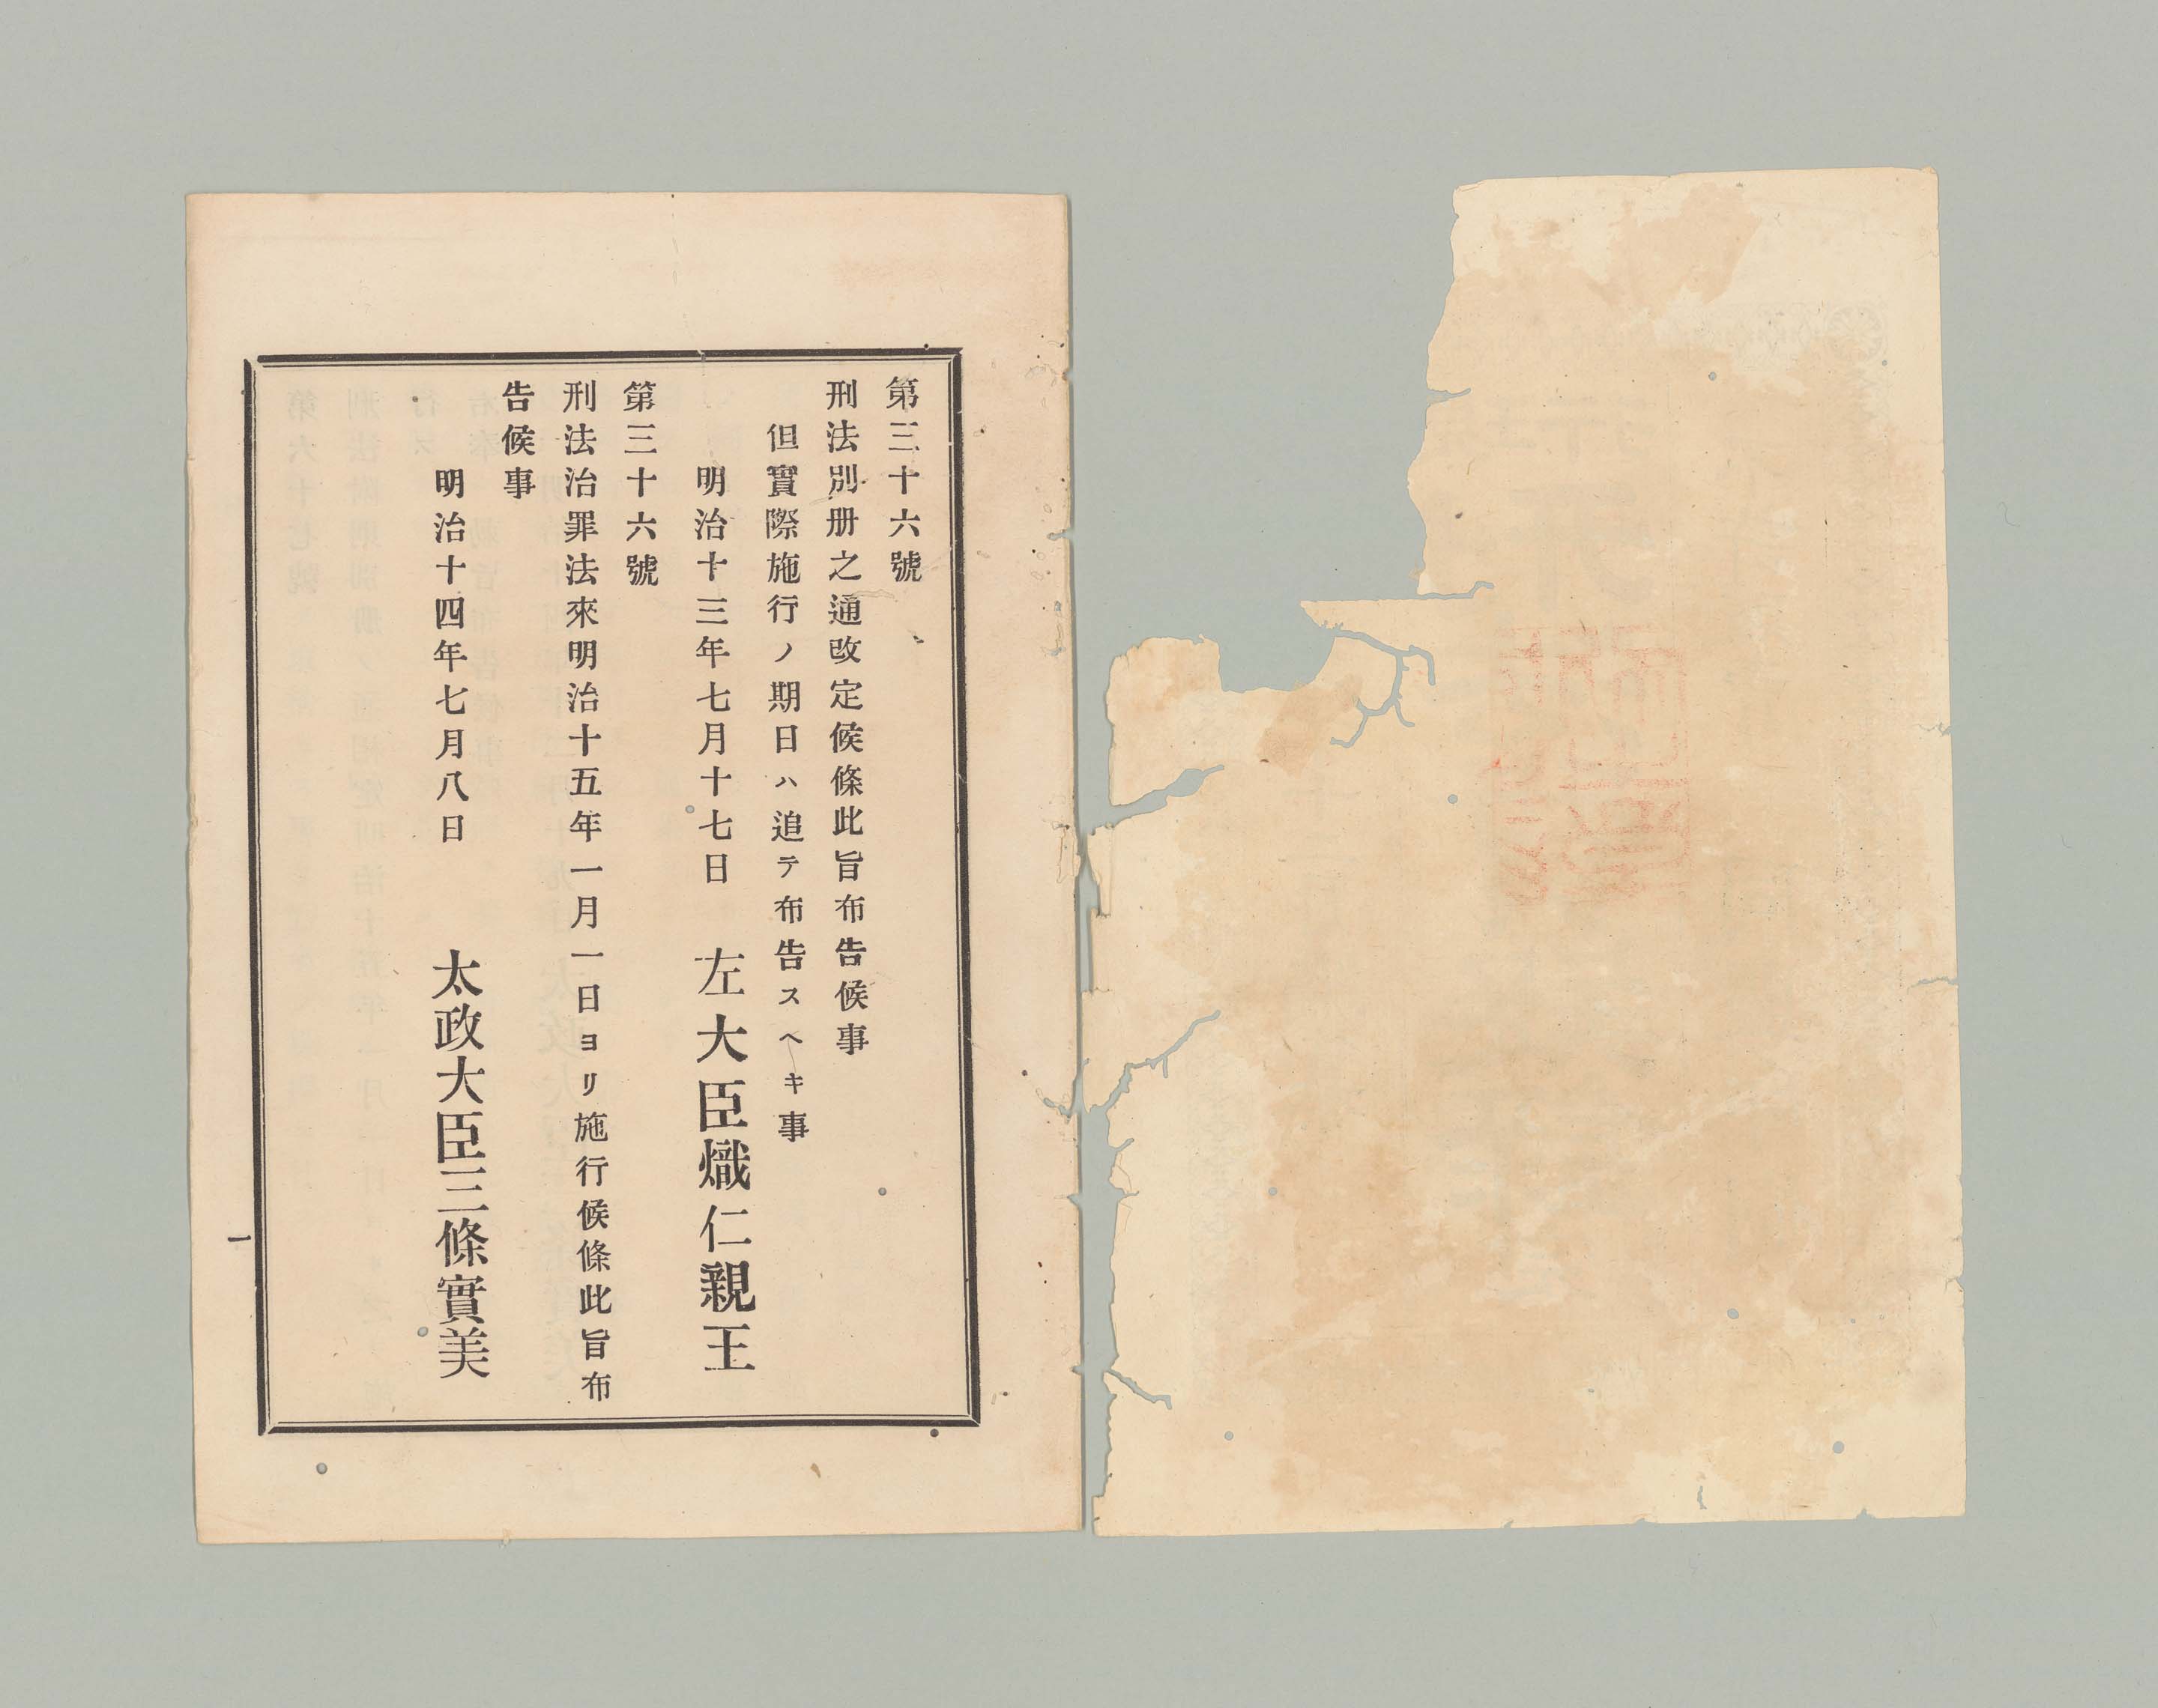 第三十六號
刑法別册之通改定候條此旨布告候事
但實際施行ノ期日ハ追テ布告スヘキ事
明治十三年七月十七日
左大臣熾仁親王
第三十六號
刑法治罪法來明治十五年一月一日ヨリ施行候條此旨布
告候事
明治十四年七月八日
太政大臣三條實美
一